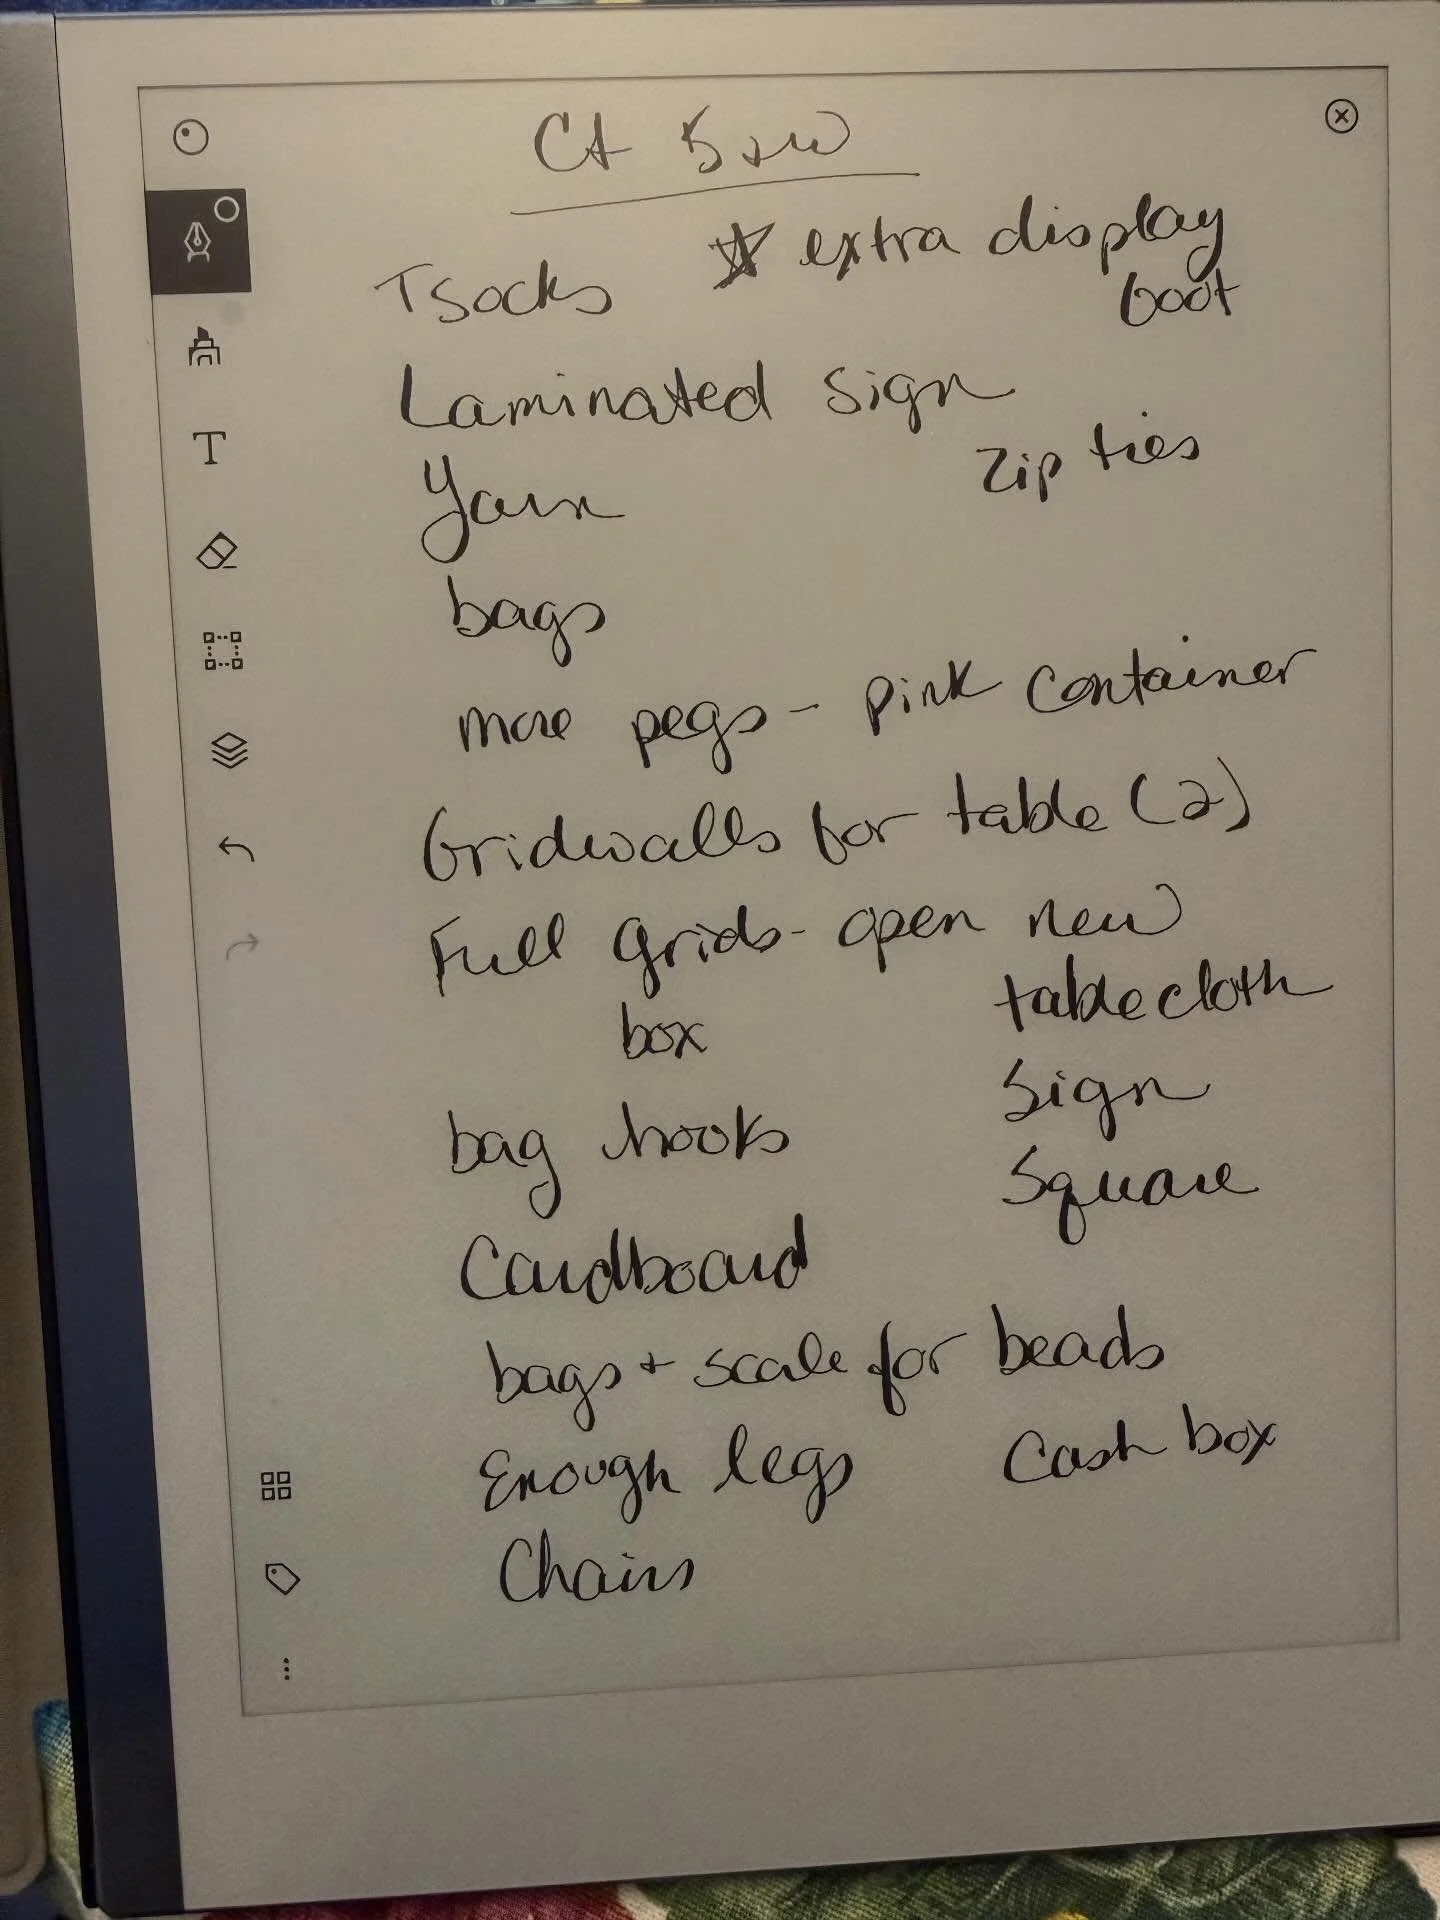 Ct S+W
Tsocks
☆ extra display
boot
Laminated Sign
Zip ties
Yarn
bags
more pegs - pink container
Gridwalls for table (2)
Full Grids - open new
box
tablecloth
Sign
bag hooks
Square
Cardboard
bags + scale for beads
Enough legs
Cash box
Chairs
T